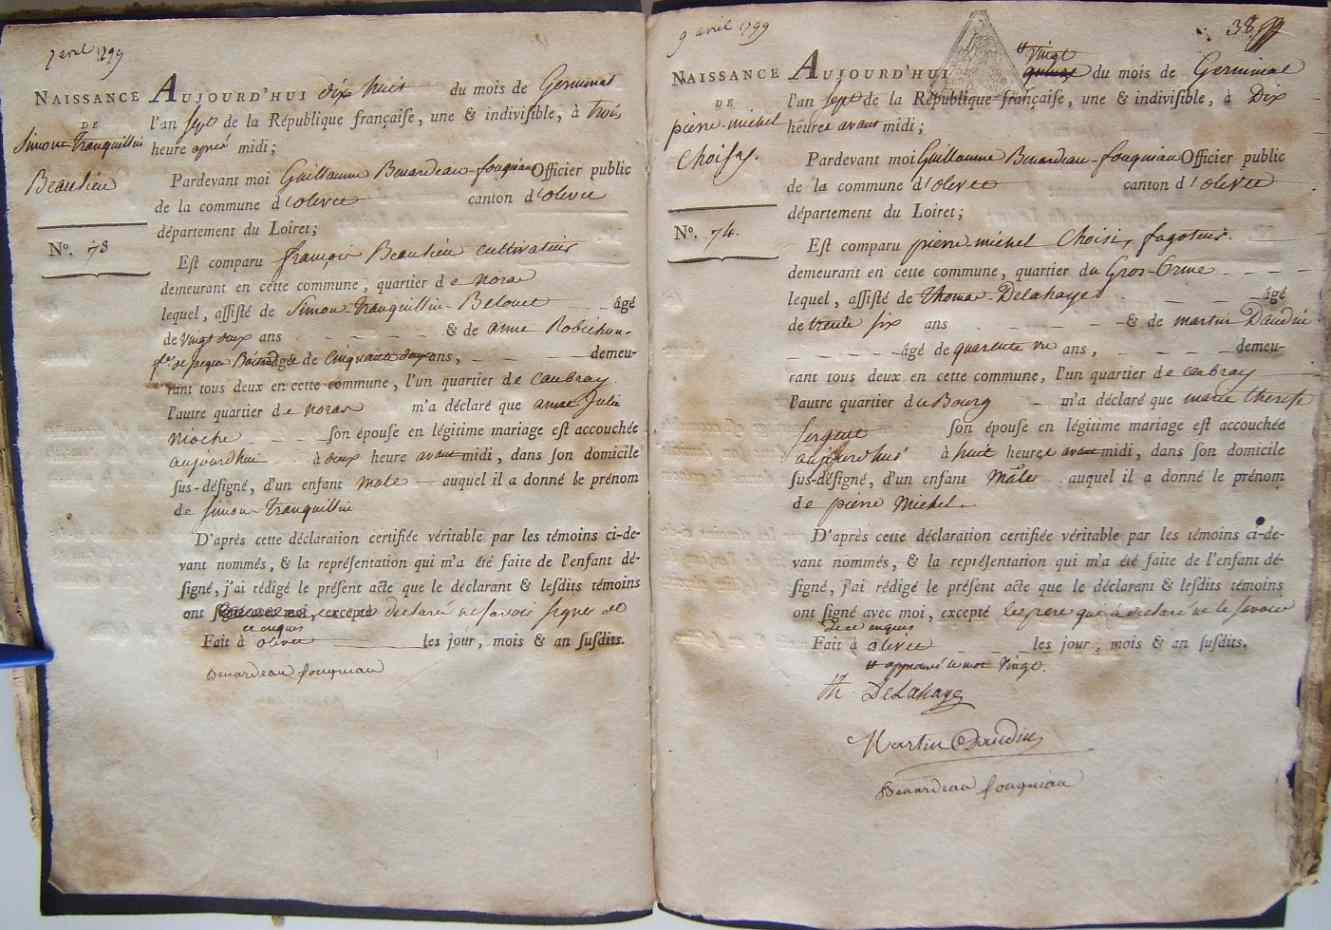 7 avril 1799
NAISSANCE
DE
Simon Tranquillin
Beaulieu
N°. 73
AUJOURD'HUI dix huit du mois de Germinal
l'an sept de la République françaiſe, une & indiviſible, à trois
heure après midi;
Pardevant moi Guillaume Benardeau-fouqueau Officier public
de la commune d'olivet canton d'olivet
département du Loiret;
Eſt comparu françois Beaulieu cultivateur
demeurant en cette commune, quartier de noras
lequel, aſſiſté de Simon Tranquillin - Belouet âgé
de vingt deux ans & de anne Robichon
fe. de jacque âgée de Cinquante deux ans, demeu-
rant tous deux en cette commune, l'un quartier de caubray
l'autre quartier de noras m'a déclaré que anne Julie
nioche ſon épouſe en légitime mariage eſt accouchée
aujourdhui à deux heure avant midi, dans ſon domicile
ſus-déſigné, d'un enfant male auquel il a donné le prénom
de ſimon-Tranquillin
D'après cette déclaration certifiée véritable par les témoins ci-de-
vant nommés, & la repréſentation qui m'a été faite de l'enfant dé-
ſigné, j'ai rédigé le préſent acte que le déclarant & leſdits témoins
ont ſigné avec moi, excepté déclaré ne savoir signer de
ce enquis
Fait à olivet les jour, mois & an ſuſdits.
Benardeau fouqueau
9 avril 1799
38
NAISSANCE
DE
pierre-michel
Choisy.
N°. 74.
AUJOURD'HUI vingt du mois de Germinal
l'an sept de la République françaiſe, une & indiviſible, à Dix
heures avant midi;
Pardevant moi Guillaume Benardeau-fouqueau Officier public
de la commune d'olivet canton d'olivet
département du Loiret;
Eſt comparu pierre-michel Choisi, fagoteur.
demeurant en cette commune, quartier du Gros-Orme
lequel, aſſiſté de Thomas-Delahaye âgé
de trente six ans & de martin Daudin
âgé de quarente un ans, demeu-
rant tous deux en cette commune, l'un quartier de caubray
l'autre quartier du Bourg m'a déclaré que marie therese
sergent ſon épouſe en légitime mariage eſt accouchée
aujourdhui à huit heures avant midi, dans ſon domicile
ſus-déſigné, d'un enfant mâle auquel il a donné le prénom
de pierre Michel.
D'après cette déclaration certifiée véritable par les témoins ci-de-
vant nommés, & la repréſentation qui m'a été faite de l'enfant dé-
ſigné, j'ai rédigé le préſent acte que le déclarant & leſdits témoins
ont ſigné avec moi, excepté le pere qui a déclaré ne le savoir
de ce enquis
Fait à olivet les jour, mois & an ſuſdits.
approuvé le mot vingt.
th DeLahaye
Martin Daudin
Benardeau fouqueau